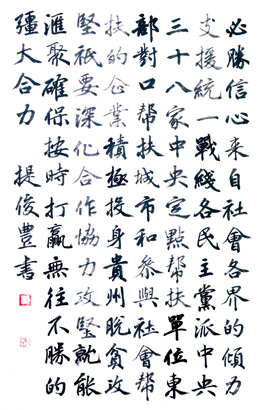 必勝信心來自社會各界的傾力
支援統一戰綫各民主黨派中央
三十八家中央定點幫扶單位東
部對口幫扶城市和參與社會幫
扶的企業積極投身貴州脫貧攻
堅祇要深化合作協力攻堅就能
滙聚確保按時打贏無往不勝的
彊大合力 提俊豊書